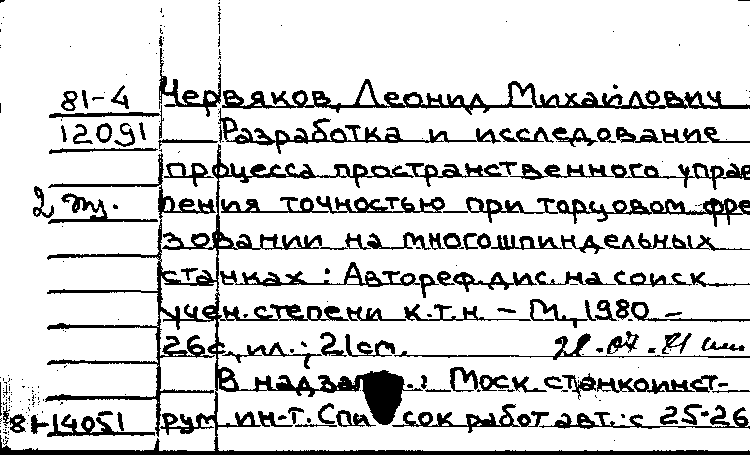 81-4 Червяков, Леонид Михайлович
12091 Разработка и исследование
процесса пространственного управ
2 ления точностью при торцовом фре
зовании на многошпиндельных
станках : Автореф. дис. на соиск
учен. степени к.т.н. – М., 1980 –
26с., ил.; 21см.
В надзаг.: Моск. станкоинст-
81-14051 рум. ин-т. Список работ авт.: с 25-26